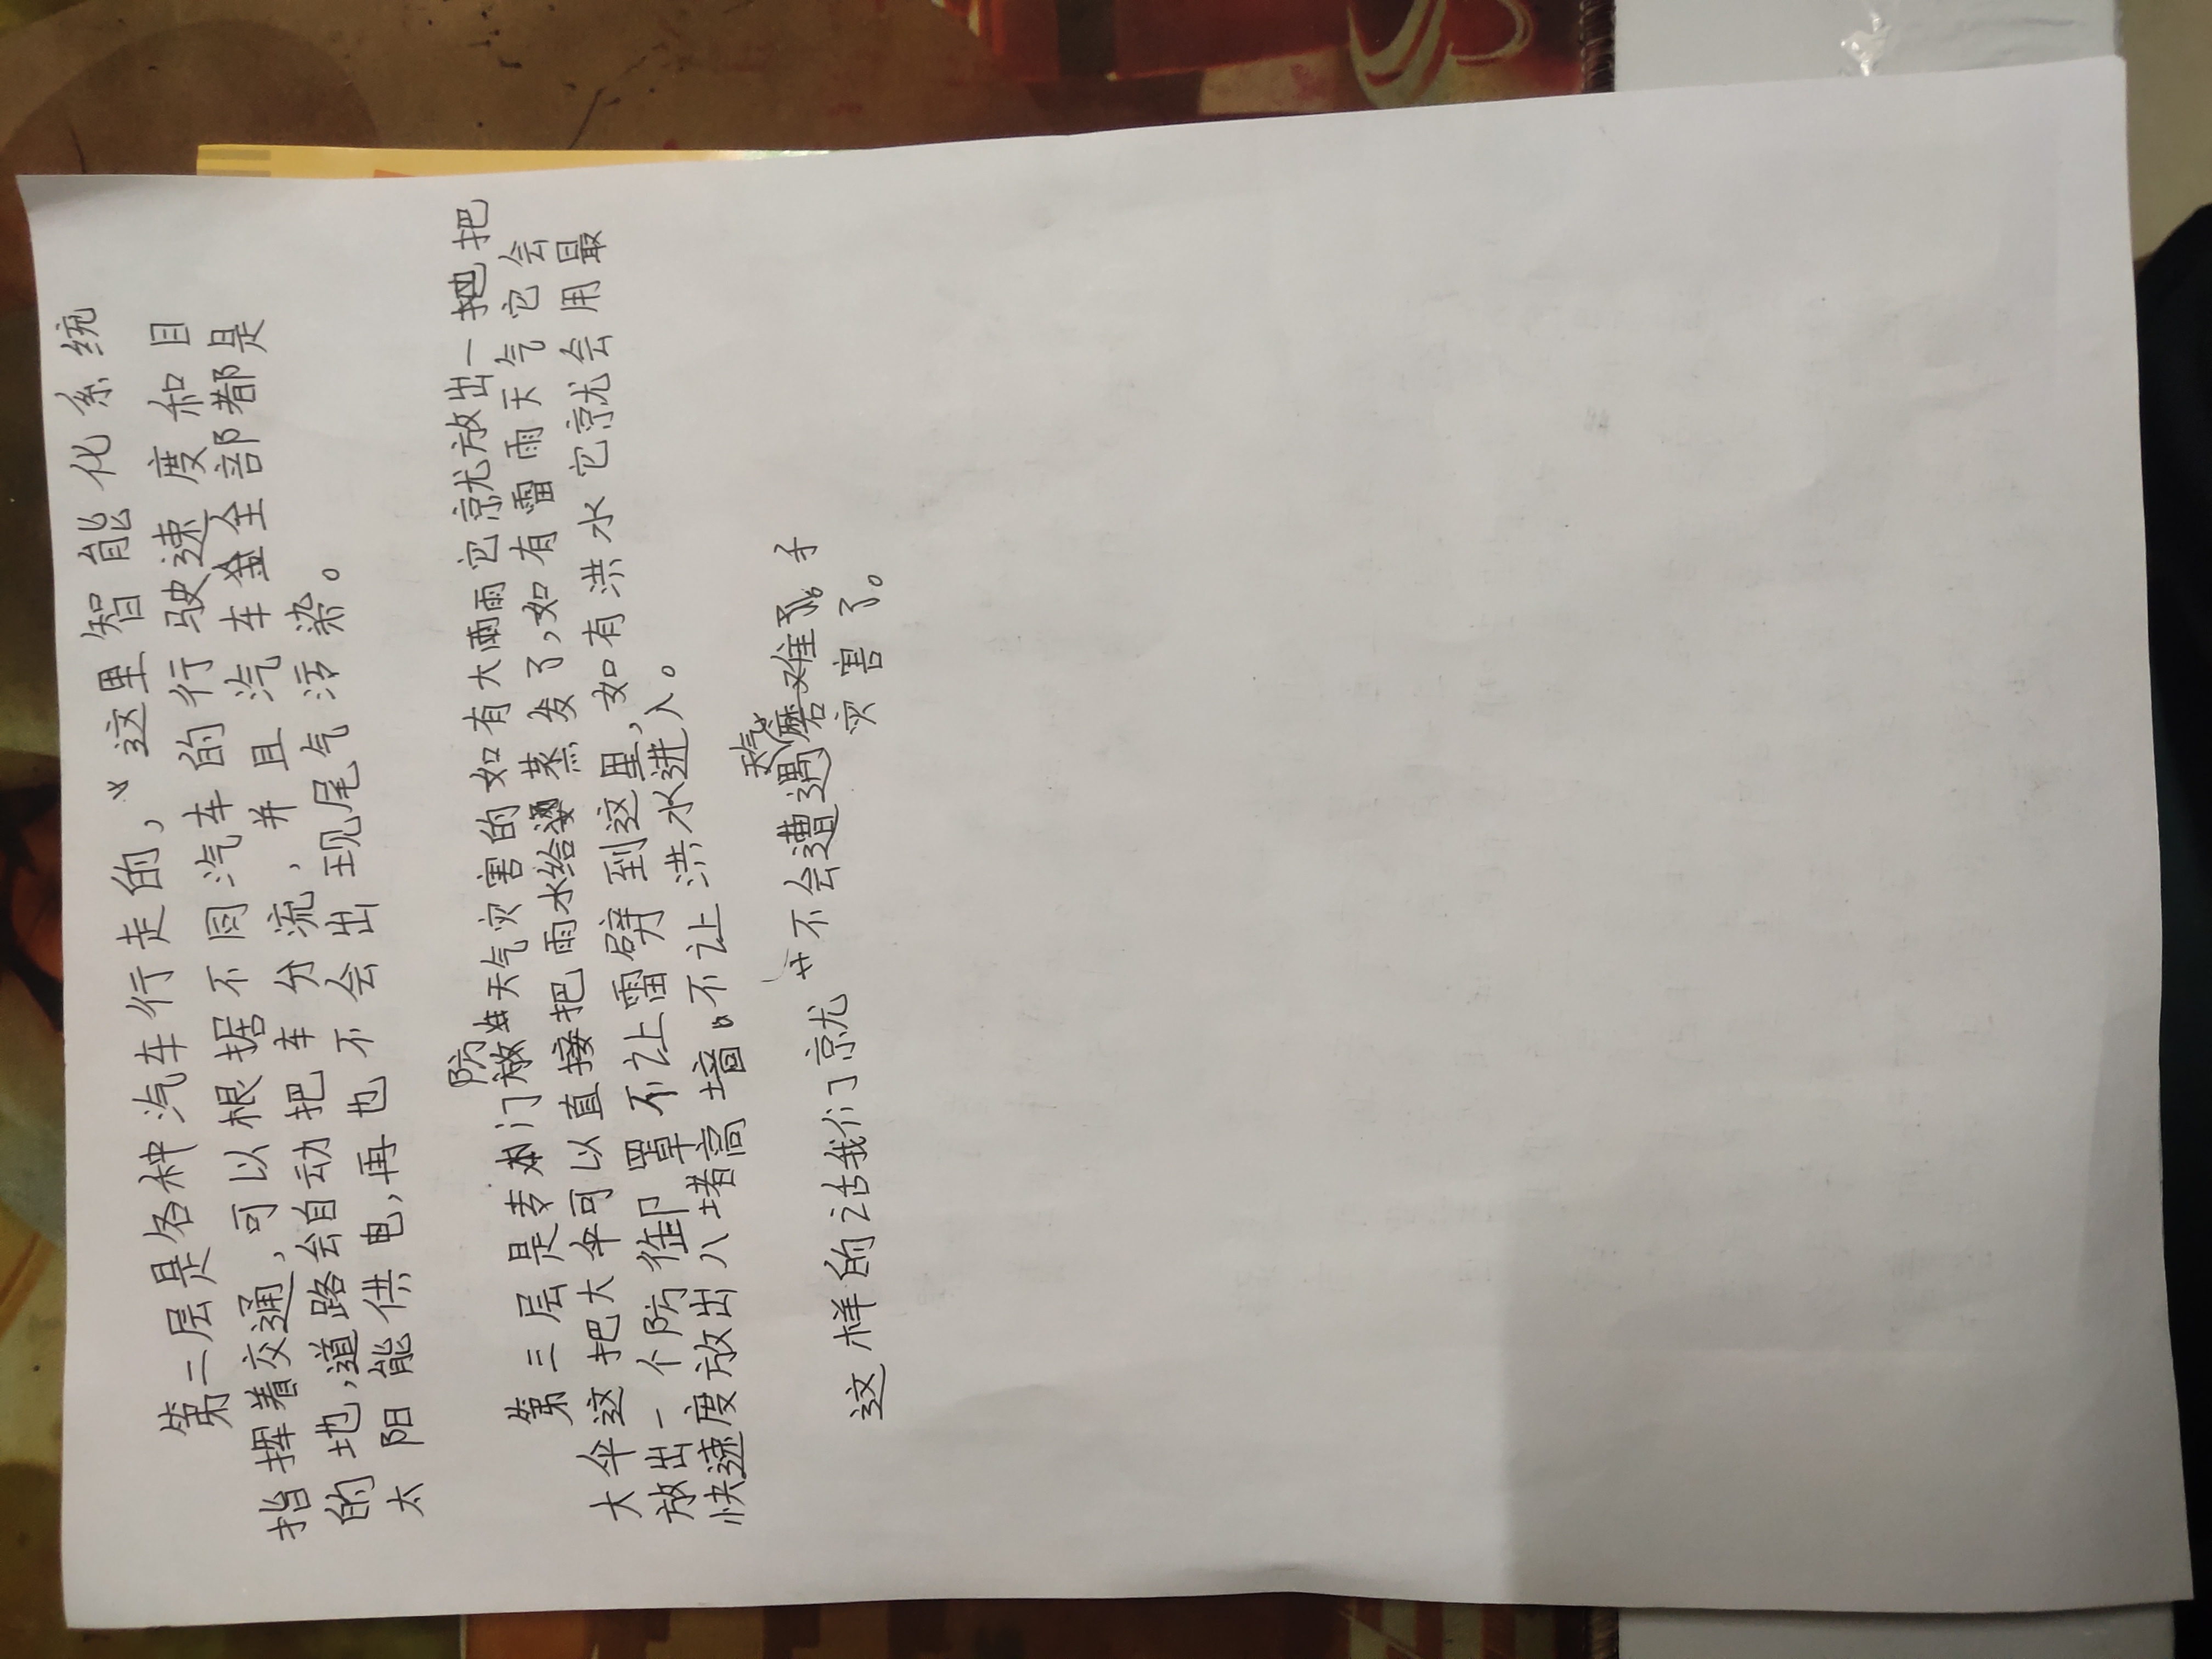 第二层是各种汽车行走的，这里智能化系统
指挥着交通，可以根据不同汽车的行驶速度和目
的地，道路会自动把车分流，并且汽车全部都是
太阳能供电，再也不会出现尾气污染。
第三层是专门防天气灾害的如有大雨它就放出一把
大伞这把大伞可以直接把雨水给蒸发了，如有雷雨天气它会
放出一个防御罩不让雷劈到这里，如有洪水它就会用最
快速度放出八堵高墙。不让洪水进入。
这样的话我们就不会遭遇天气
灾害了。